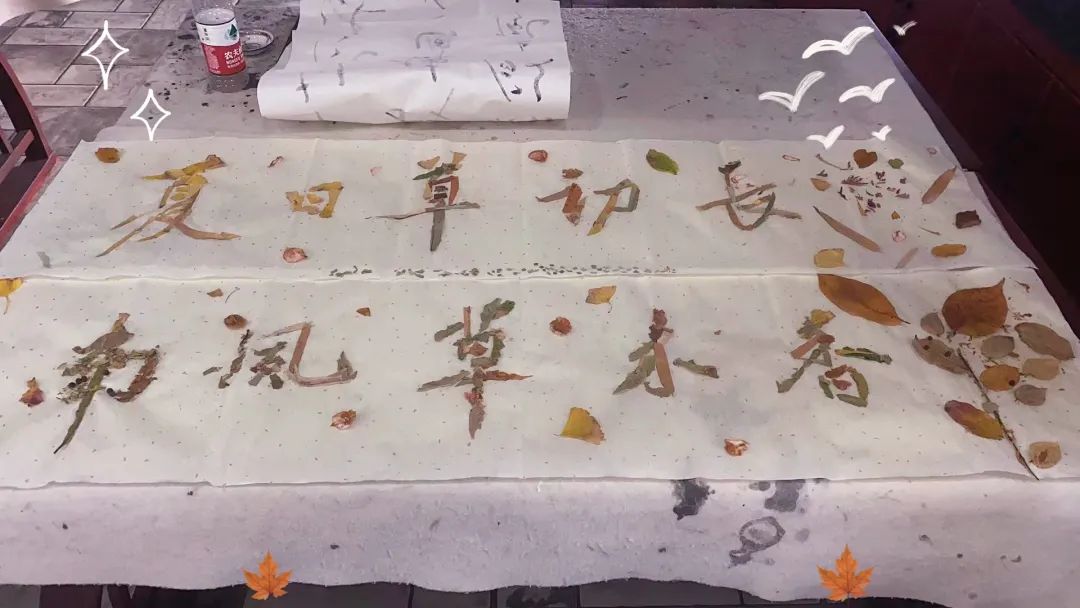 农夫
夏日草初長
南風草木香